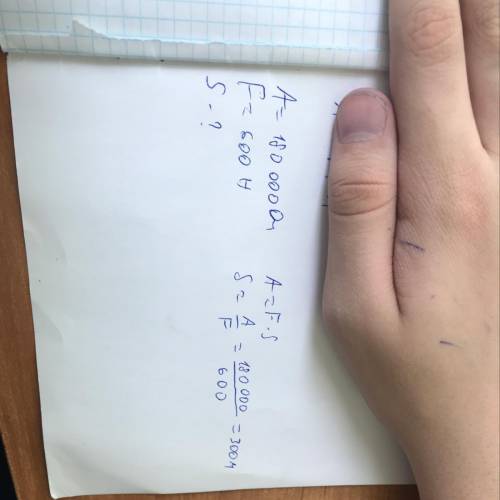 A = 180 000 Дж
F = 600 Н
S - ?
A = F · S
S = A/F = 180 000/600 = 300 м